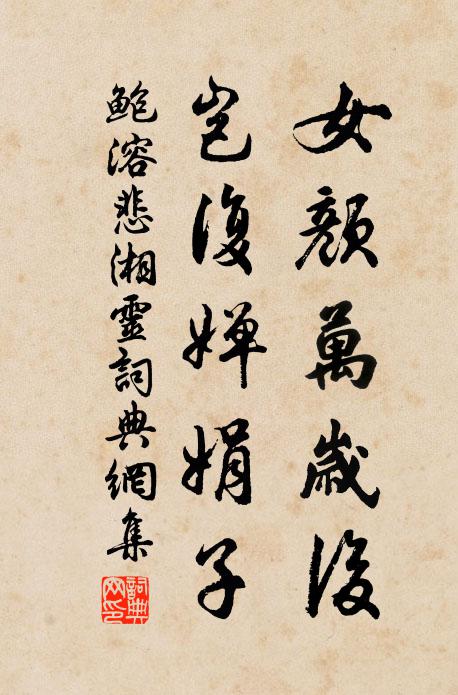 女顏萬歲後
豈復嬋娟子
鮑溶悲湘靈詞典網集
詞典
网印